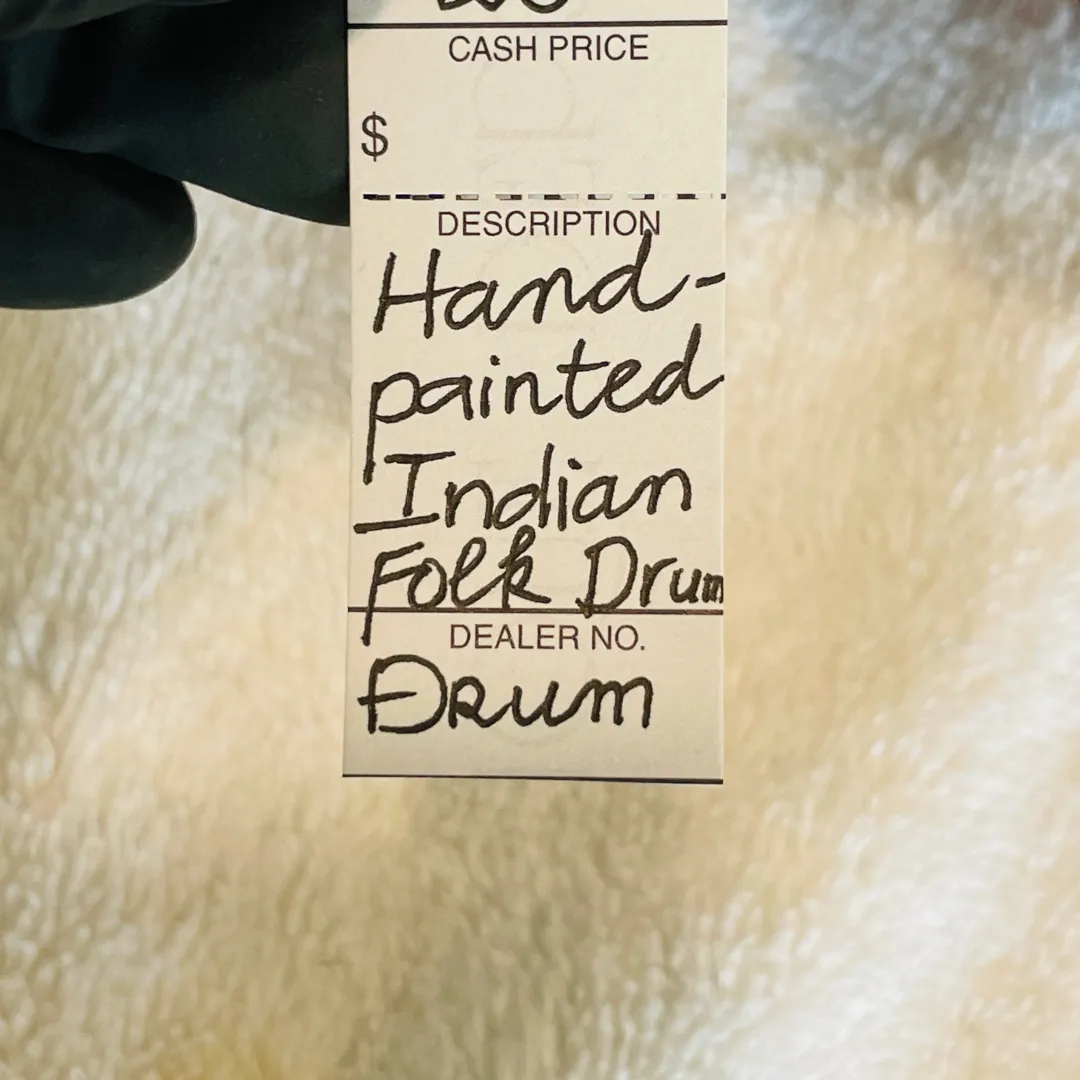 CASH PRICE
$
DESCRIPTION
Hand-
painted
Indian
Folk Drum
DEALER NO.
Drum